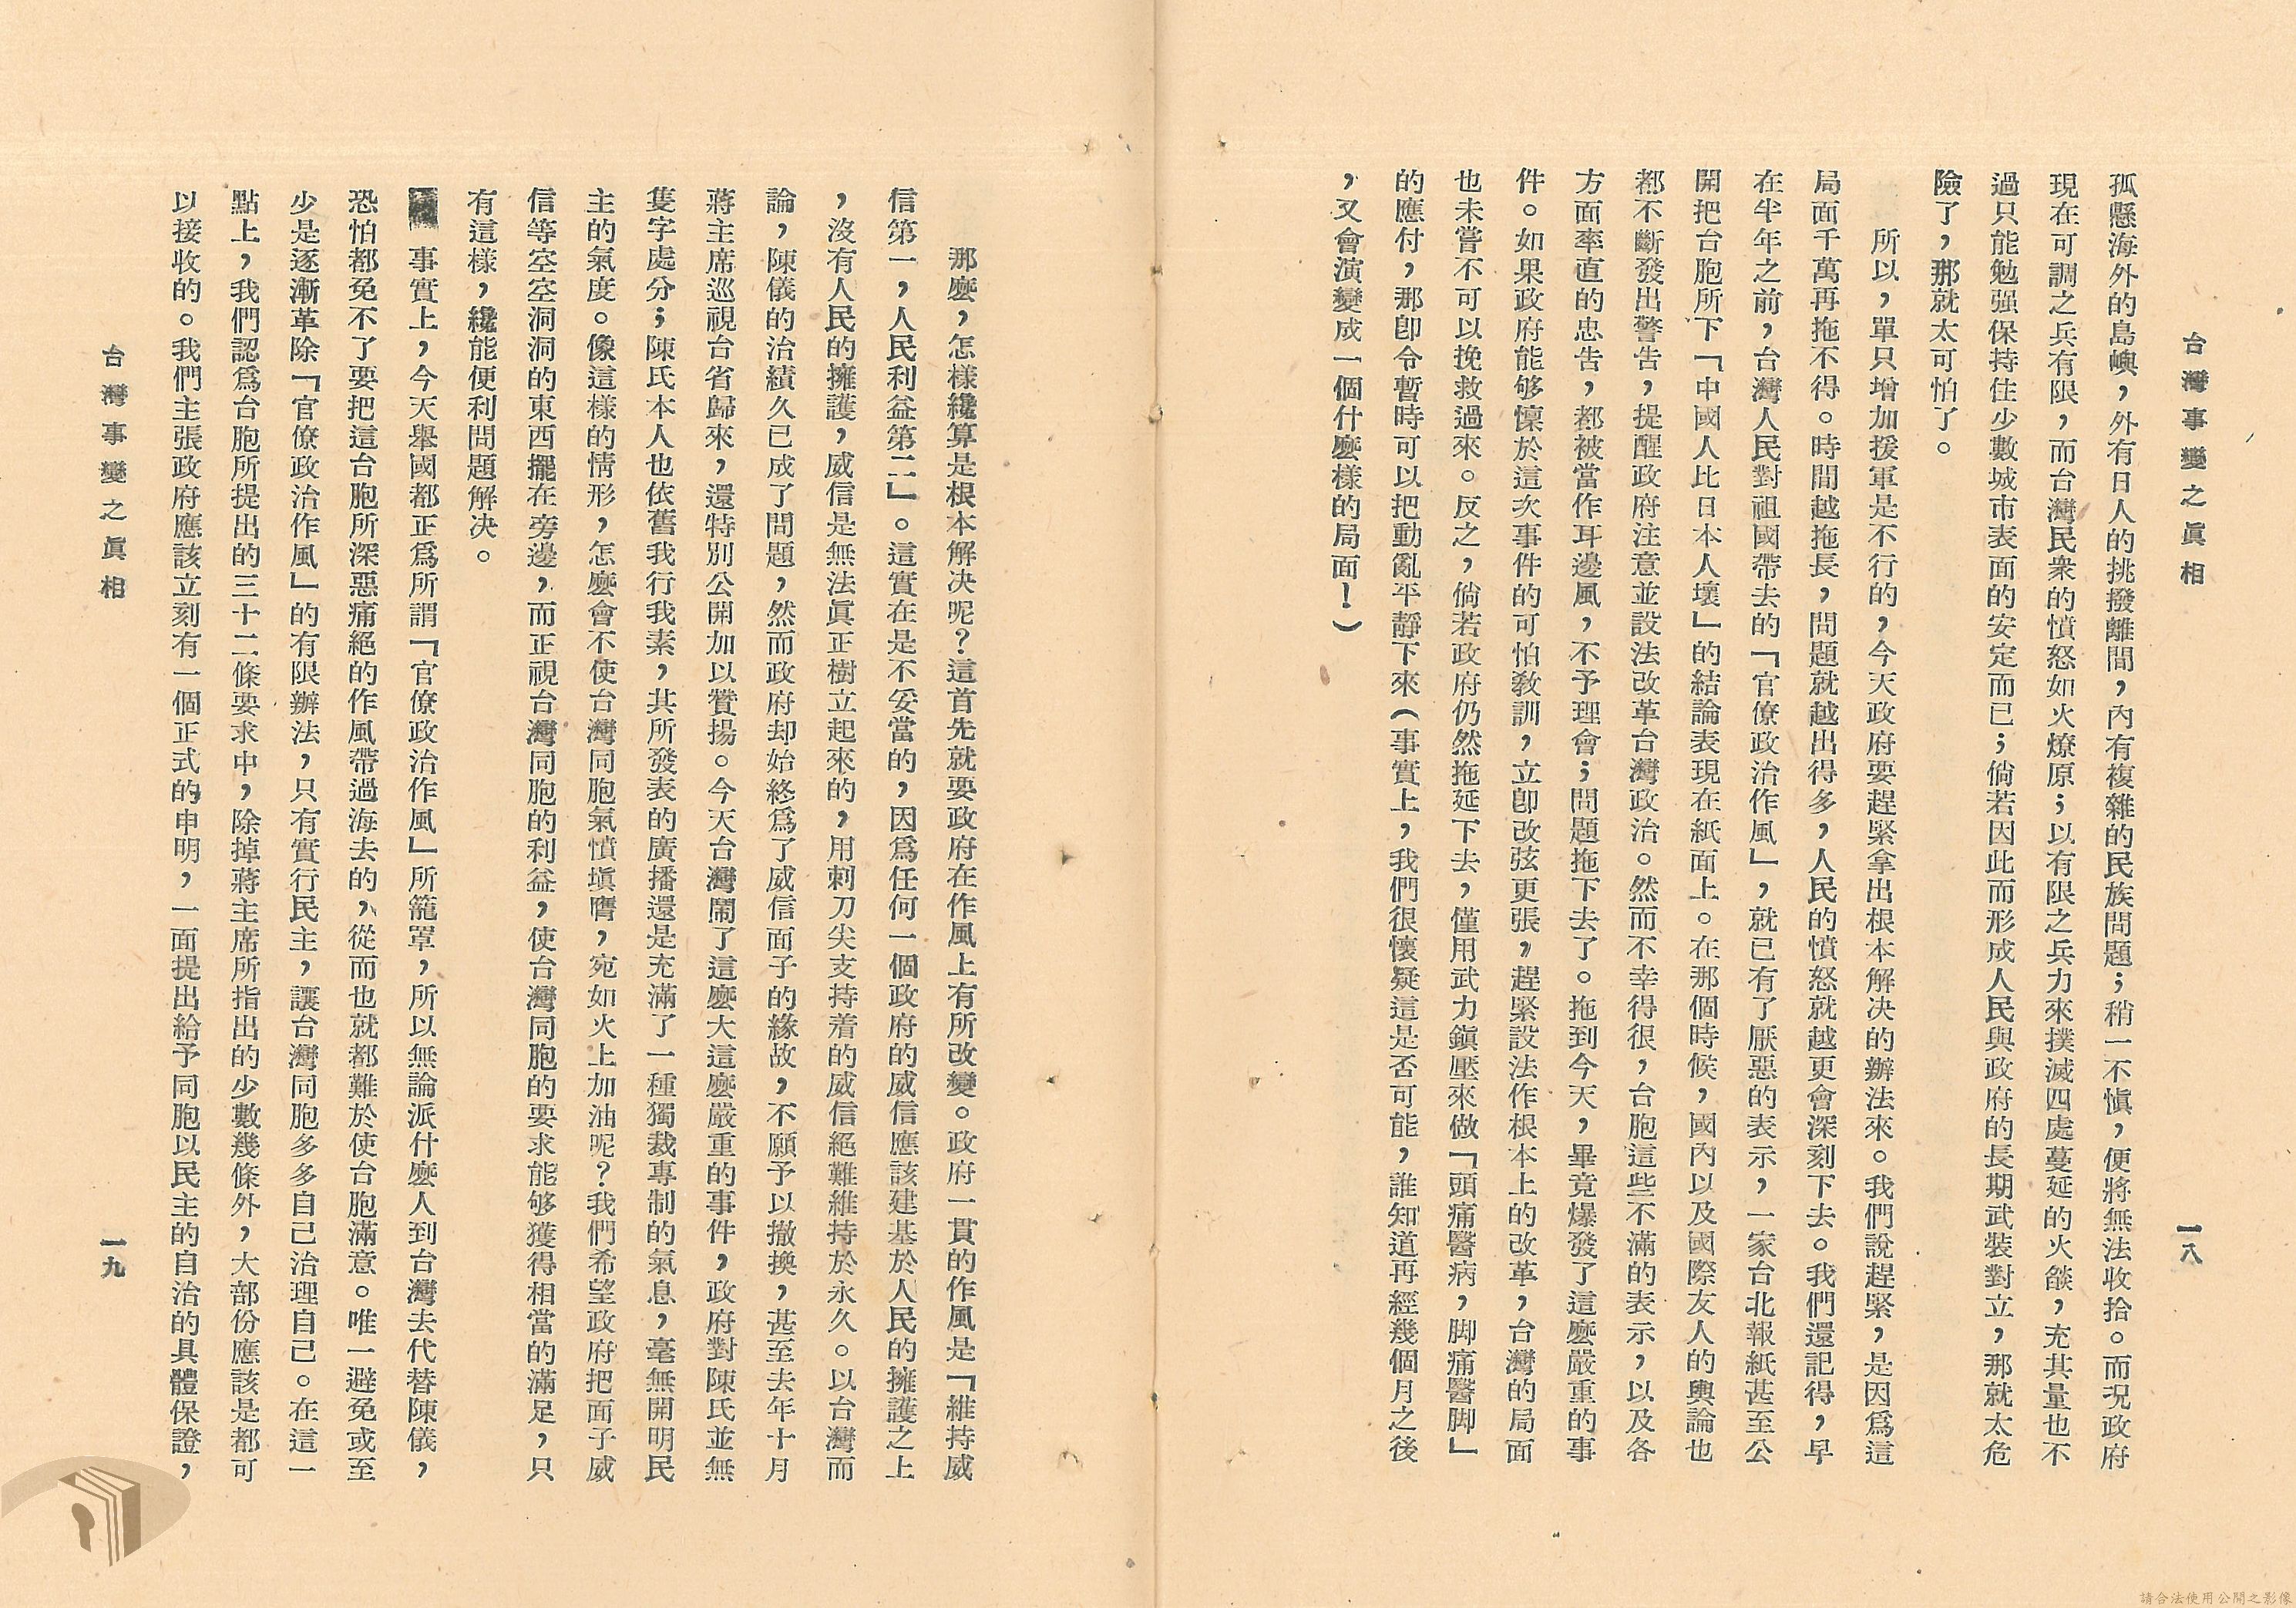 台灣事變之眞相
一八
孤懸海外的島嶼，外有日人的挑撥離間，內有複雜的民族問題；稍一不愼，便將無法收拾。而况政府
現在可調之兵有限，而台灣民衆的憤怒如火燎原；以有限之兵力來撲滅四處蔓延的火燄，充其量也不
過只能勉强保持住少數城市表面的安定而已；倘若因此而形成人民與政府的長期武裝對立，那就太危
險了，那就太可怕了。
所以，單只增加援軍是不行的，今天政府要趕緊拿出根本解决的辦法來。我們說趕緊，是因爲這
局面千萬再拖不得。時間越拖長，問題就越出得多，人民的憤怒就越更會深刻下去。我們還記得，早
在半年之前，台灣人民對祖國帶去的「官僚政治作風」，就已有了厭惡的表示，一家台北報紙甚至公
開把台胞所下「中國人比日本人壞」的結論表現在紙面上。在那個時候，國內以及國際友人的輿論也
都不斷發出警告，提醒政府注意並設法改革台灣政治。然而不幸得很，台胞這些不滿的表示，以及各
方面率直的忠告，都被當作耳邊風，不予理會；問題拖下去了。拖到今天，畢竟爆發了這麽嚴重的事
件。如果政府能够懍於這次事件的可怕敎訓，立卽改弦更張，趕緊設法作根本上的改革，台灣的局面
也未嘗不可以挽救過來。反之，倘若政府仍然拖延下去，僅用武力鎭壓來做「頭痛醫病，脚痛醫脚」
的應付，那卽令暫時可以把動亂平靜下來（事實上，我們很懷疑這是否可能，誰知道再經幾個月之後
，又會演變成一個什麽樣的局面！）
那麽，怎樣纔算是根本解决呢？這首先就要政府在作風上有所改變。政府一貫的作風是「維持威
信第一，人民利益第二」。這實在是不妥當的，因爲任何一個政府的威信應該建基於人民的擁護之上
，沒有人民的擁護，威信是無法眞正樹立起來的，用刺刀尖支持着的威信絕難維持於永久。以台灣而
論，陳儀的治績久已成了問題，然而政府却始終爲了威信面子的緣故，不願予以撤換，甚至去年十月
蔣主席巡視台省歸來，還特別公開加以贊揚。今天台灣鬧了這麽大這麽嚴重的事件，政府對陳氏並無
隻字處分；陳氏本人也依舊我行我素，其所發表的廣播還是充滿了一種獨裁專制的氣息，毫無開明民
主的氣度。像這樣的情形，怎麽會不使台灣同胞氣憤塡膺，宛如火上加油呢？我們希望政府把面子威
信等空空洞洞的東西擺在旁邊，而正視台灣同胞的利益，使台灣同胞的要求能够獲得相當的滿足，只
有這樣，纔能便利問題解决。
事實上，今天舉國都正爲所謂「官僚政治作風」所籠罩，所以無論派什麽人到台灣去代替陳儀，
恐怕都免不了要把這台胞所深惡痛絕的作風帶過海去的，從而也就都難於使台胞滿意。唯一避免或至
少是逐漸革除「官僚政治作風」的有限辦法，只有實行民主，讓台灣同胞多多自己治理自己。在這一
點上，我們認爲台胞所提出的三十二條要求中，除掉蔣主席所指出的少數幾條外，大部份應該是都可
以接收的。我們主張政府應該立刻有一個正式的申明，一面提出給予同胞以民主的自治的具體保證，
台灣事變之眞相
一九
請合法使用公開之影像